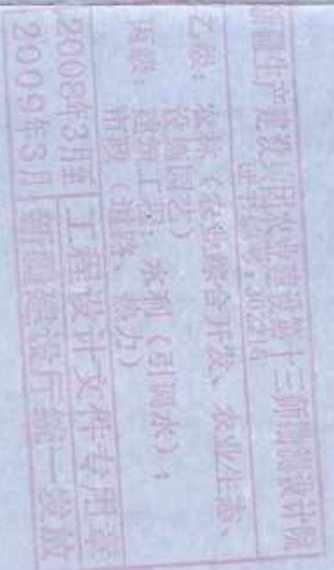 新疆生产建设兵团农业建设第十三师勘测设计院
乙级:农林(农业综合开发、农业生态、
设施园艺)
丙级:建筑工程:水利(引调水);
市政(道路、热力)
2008年3月至
2009年3月
工程设计文件专用章
新疆建设厅统一发放